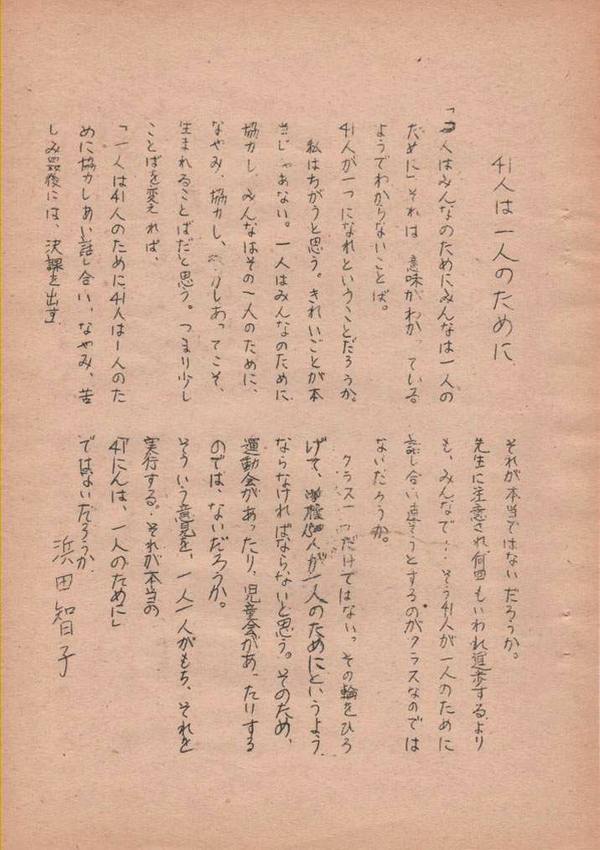 41人は一人のために
「一人はみんなのためにみんなは一人の
ために」それは意味がわかっている
ようでわからないことば。
41人が一つになれということだろうか。
私はちがうと思う。きれいごとが本
当じゃあない。一人はみんなのために
協力し、みんなはその一人のために、
なやみ、協力し、しあってこそ、
生まれることばだと思う。つまり少し
ことばを変えれば、
「一人は41人のために41人は1人のた
めに協力しあい話し合い、なやみ、苦
しみ最後には、決課を出す
それが本当ではないだろうか。
先生に注意され何回もいわれ進歩するより
も、みんなで・・そう41人が一人のために
話し合い直そうとするのがクラスなのでは
ないだろうか。
クラス一つだけではない。その輪をひろ
げて、人が一人のためにというよう
ならなければならないと思う。そのため、
運動会があったり、児童会があったりする
のでは、ないだろうか。
そういう意見を、一人一人がもち、それを
実行する。それが本当の
「41にんは、一人のために」
ではないだろうか
浜田智子